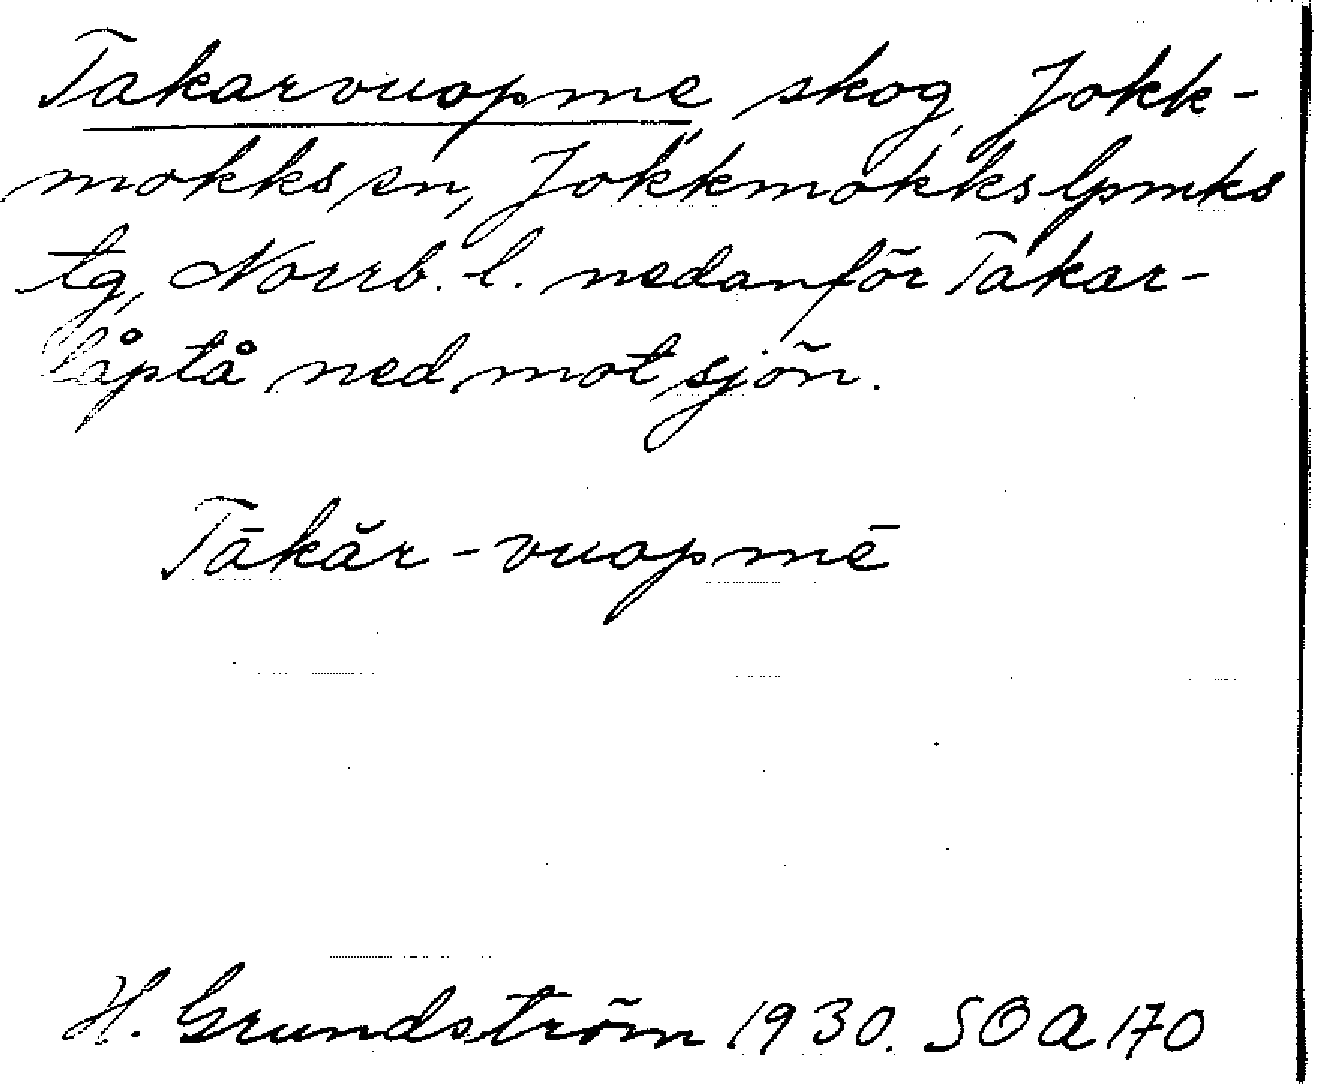 Takarvuopme skog, Jokk-
mokks sn, Jokkmokks lpmks
tg, Norrb. l. nedanför Takar-
låptå ned mot sjön.
Tākăr-vuopmē
H. Grundström 1930. SOA 170